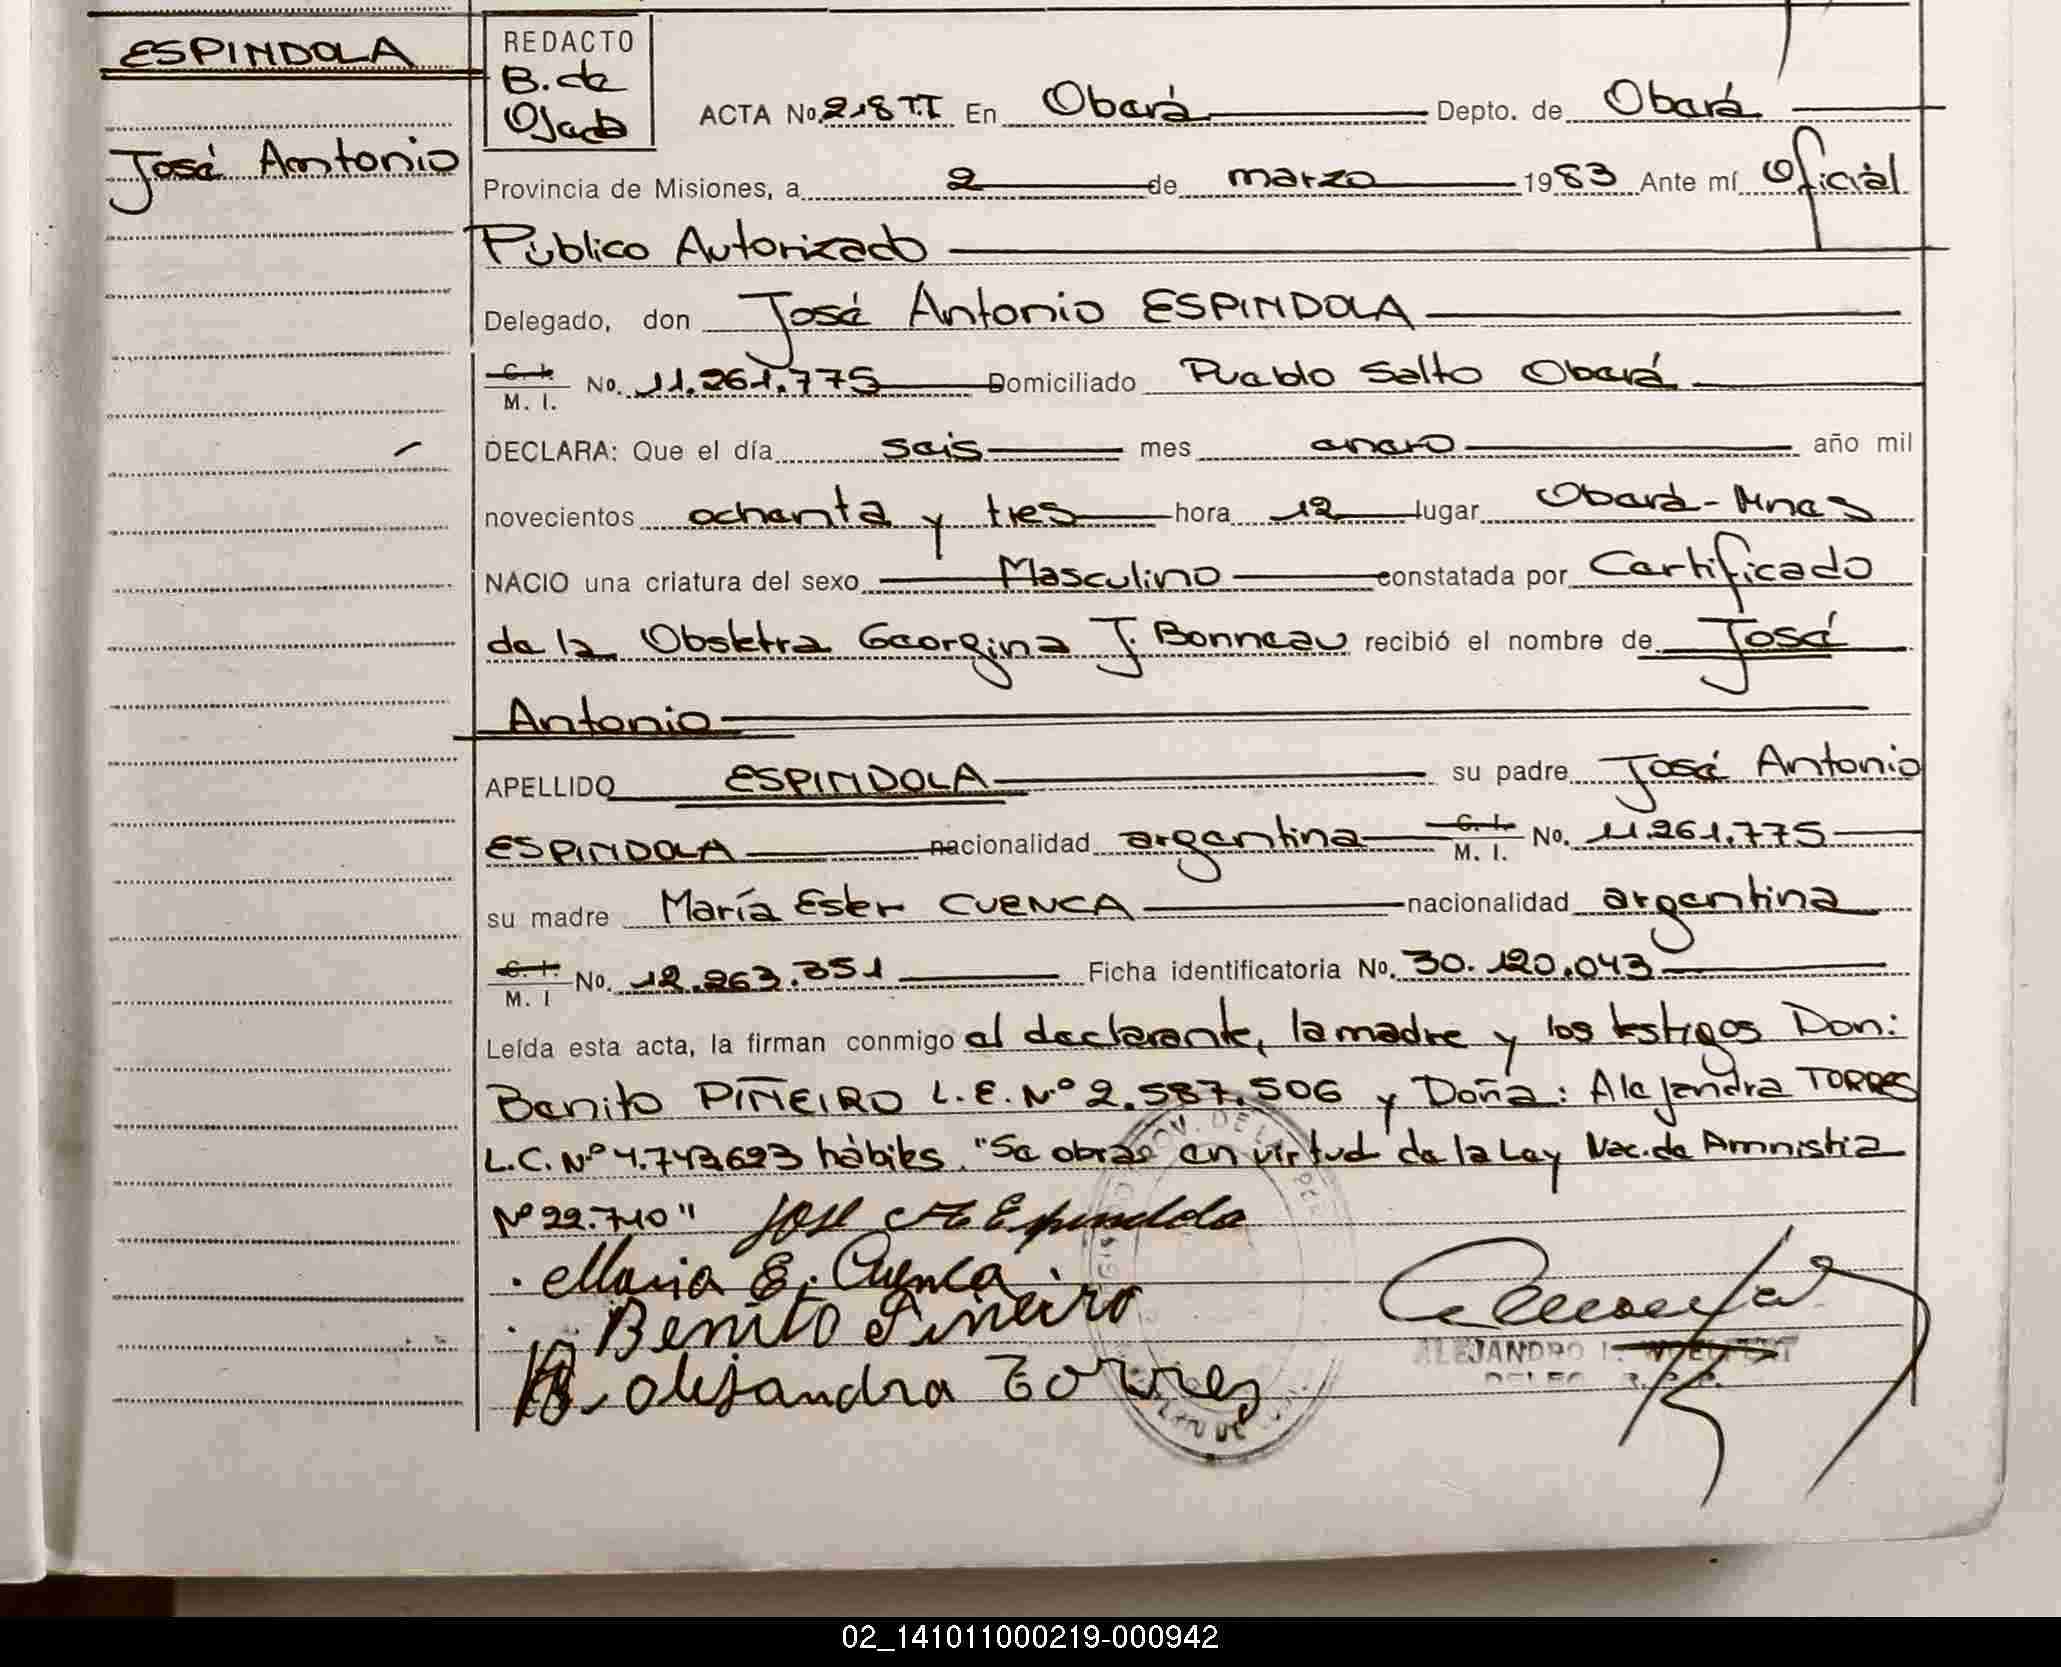 ESPINDOLA
José Antonio
REDACTO
B. de
Ojeda
ACTA No. 218 T.I En Oberá Depto. de Oberá
Provincia de Misiones, a 2 de marzo 1983 Ante mí Oficial
Público Autorizado
Delegado, don José Antonio ESPINDOLA
C. I. M. I. No. 11.261.775 Domiciliado Pueblo Salto Oberá
DECLARA: Que el día seis mes enero año mil
novecientos ochenta y tres hora 12 lugar Oberá-Mnes
NACIO una criatura del sexo Masculino constatada por Certificado
de la Obstetra Georgina J. Bonneau recibió el nombre de José
Antonio
APELLIDO ESPINDOLA su padre José Antonio
ESPINDOLA nacionalidad argentina C. I. M. I. No. 11.261.775
su madre María Ester CUENCA nacionalidad argentina
C. I. M. I No. 12.263.351 Ficha identificatoria No. 30.120.043
Leída esta acta, la firman conmigo el declarante, la madre y los testigos Don:
Benito PIÑEIRO L.E. Nº 2.587.506 y Doña: Alejandra TORRES
L.C. Nº 4.742.623 hábiles. "Se obras en virtud de la Ley Nac. de Amnistia
Nº 22.710" José A Espindola
Maria E. Cuenca
Benito Piñeiro
Alejandra Torres
ALEJANDRO
02_141011000219-000942